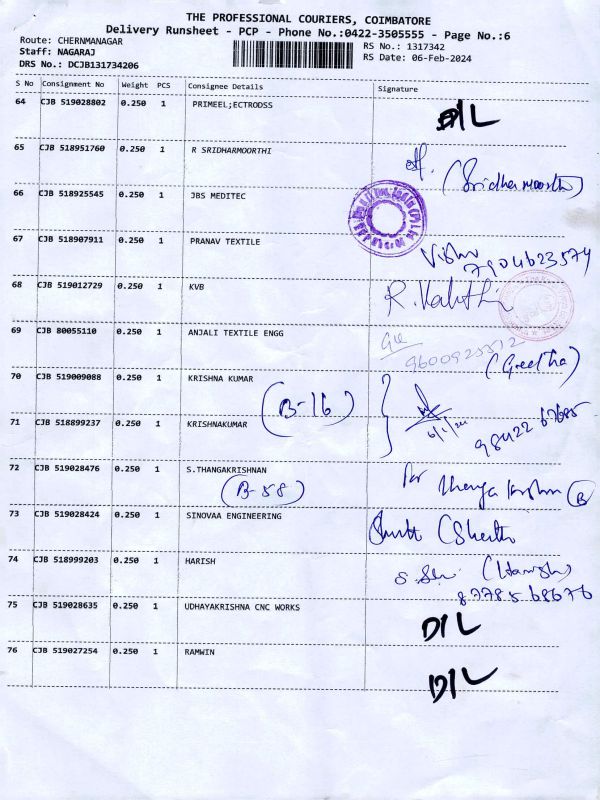 THE PROFESSIONAL COURIERS, COIMBATORE
Delivery Runsheet - PCP - Phone No.:0422-3505555 - Page No.:6
Route: CHERNMANAGAR
Staff: NAGARAJ
DRS No.: DCJB131734206
RS No.: 1317342
RS Date: 06-Feb-2024
S No Consignment No Weight PCS Consignee Details Signature
64 CJB 519028802 0.250 1 PRIMEEL;ECTRODSS D/L
65 CJB 518951760 0.250 1 R SRIDHARMOORTHI
(Sridharmoorthi)
66 CJB 518925545 0.250 1 JBS MEDITEC
67 CJB 518907911 0.250 1 PRANAV TEXTILE
Vishnu
7904623574
68 CJB 519012729 0.250 1 KVB
69 CJB 80055110 0.250 1 ANJALI TEXTILE ENGG
(Geetha)
70 CJB 519009088 0.250 1 KRISHNA KUMAR
(B-16)
71 CJB 518899237 0.250 1 KRISHNAKUMAR
98422 67685
72 CJB 519028476 0.250 1 S.THANGAKRISHNAN
(B-58)
73 CJB 519028424 0.250 1 SINOVAA ENGINEERING
74 CJB 518999203 0.250 1 HARISH
(Harish)
87785 68676
75 CJB 519028635 0.250 1 UDHAYAKRISHNA CNC WORKS D/L
76 CJB 519027254 0.250 1 RAMWIN D/L